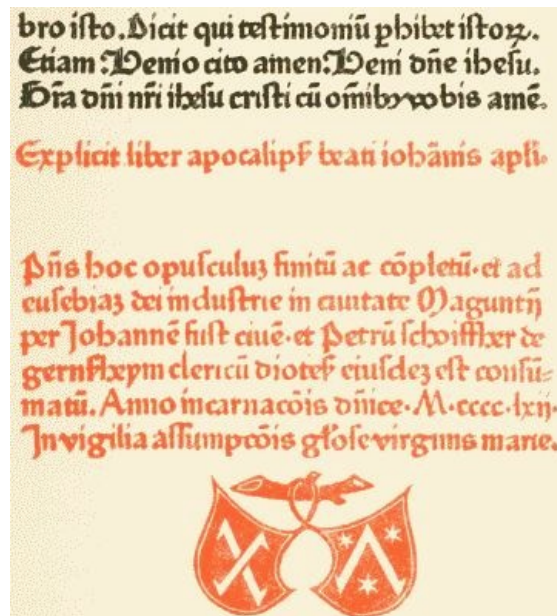 bro iſto. Dicit qui teſtimoniū ꝑhibet iſtoꝝ.
Etiam Venio cito amen. Veni dn̄e iheſu.
Gr̄a dn̄i nr̄i iheſu criſti cū om̄ibꝰ vobis amē.
Explicit liber apocalipſ beati iohānis apl̄i.
Pn̄s hoc opuſculuʒ finitū ac cōpletū. et ad
euſebiaʒ dei induſtrie in ciuitate Maguntij
per Johannē fuſt ciuē. et Petrū ſchoiffher de
gernſheym clericū dioteſ eiuſdeʒ eſt conſū-
matū. Anno incarnacōis dn̄ice. M. cccc. lxij.
In vigilia aſſumpcōis gl̄oſe virginis marie.